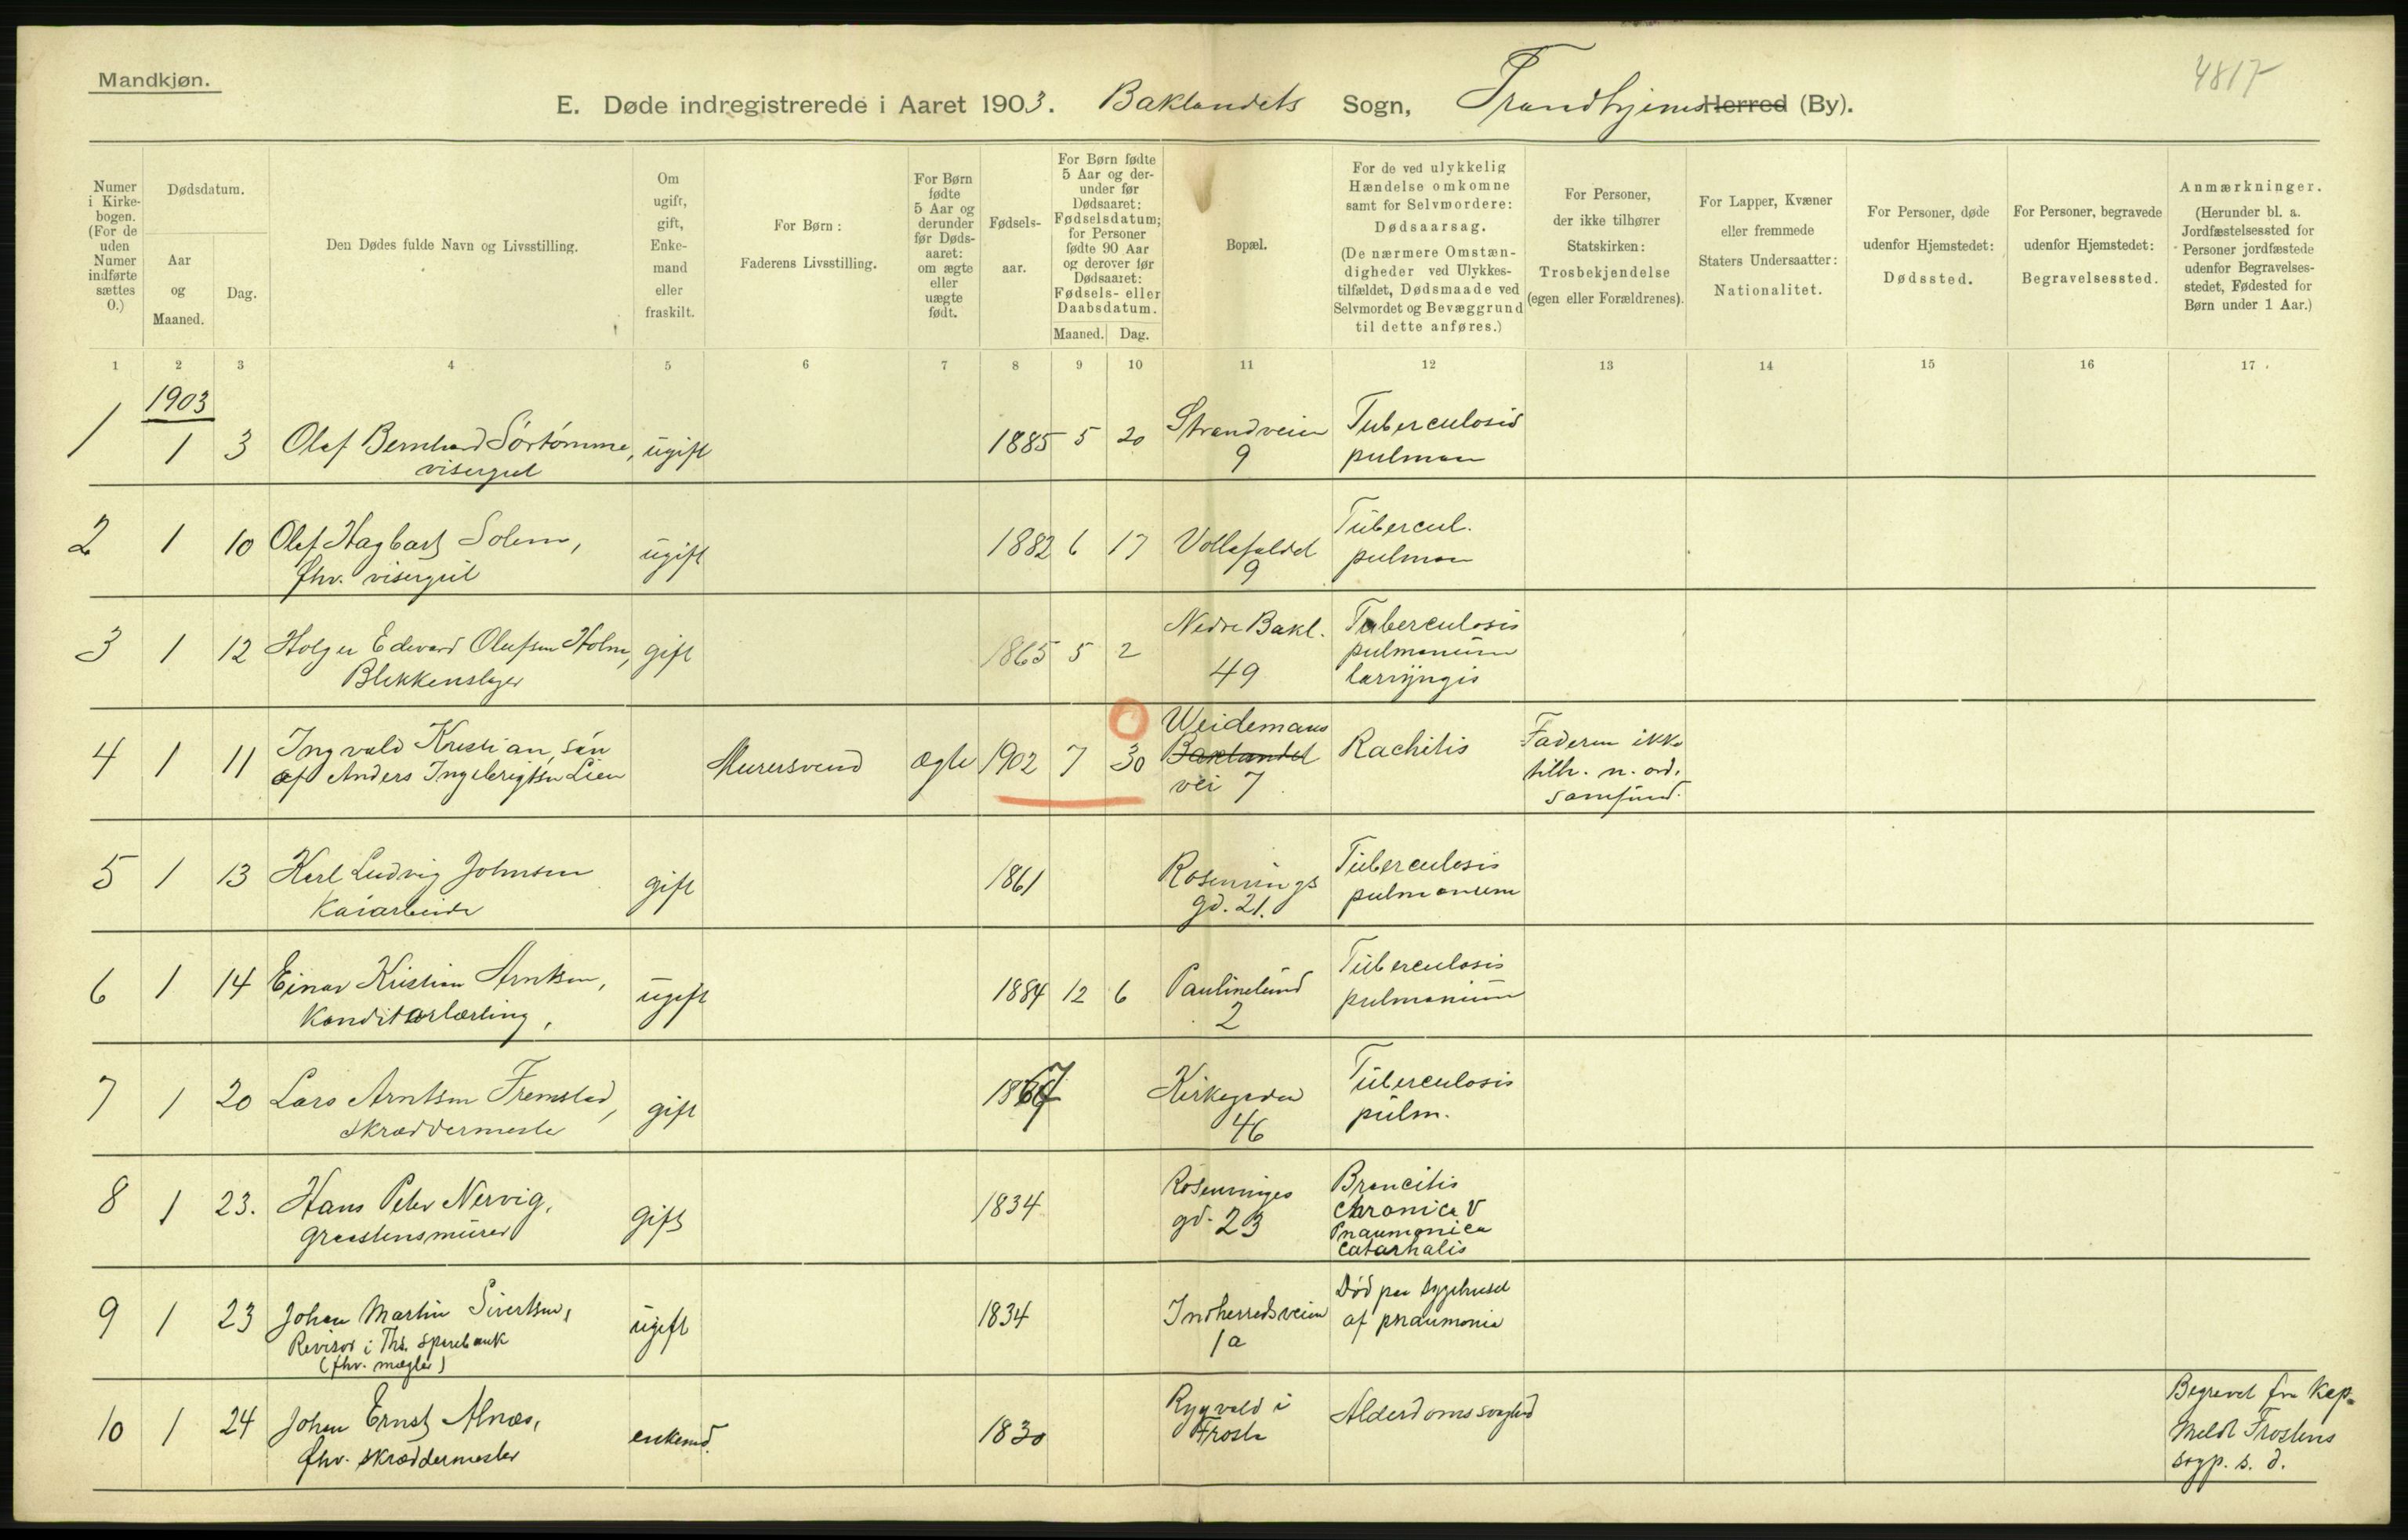 Mandkjøn.
4817
E. Døde indregistrerede i Aaret 1903. Baklandets Sogn, Trondhjems Herred (By).
Numer i Kirkebogen. (For de uden Numer indførte sættes 0.)
Dødsdatum.
Aar og Maaned.
Dag.
Den Dødes fulde Navn og Livsstilling.
Om ugift, gift, Enkemand eller fraskilt.
For Børn: Faderens Livsstilling.
For Børn fødte 5 Aar og derunder før Dødsaaret: om ægte eller uægte født.
Fødselsaar.
For Børn fødte 5 Aar og derunder før Dødsaaret: Fødselsdatum; for Personer fødte 90 Aar og derover før Dødsaaret: Fødsels- eller Daabsdatum.
Maaned. Dag.
Bopæl.
For de ved ulykkelig Hændelse omkomne samt for Selvmordere: Dødsaarsag. (De nærmere Omstændigheder ved Ulykkestilfældet, Dødsmaade ved Selvmordet og Bevæggrund til dette anføres.)
For Personer, der ikke tilhører Statskirken: Trosbekjendelse (egen eller Forældrenes).
For Lapper, Kvæner eller fremmede Staters Undersaatter: Nationalitet.
For Personer, døde udenfor Hjemstedet: Dødssted.
For Personer, begravede udenfor Hjemstedet: Begravelsessted.
Anmærkninger. (Herunder bl. a. Jordfæstelsessted for Personer jordfæstede udenfor Begravelsesstedet, Fødested for Børn under 1 Aar.)
1 2 3 4 5 6 7 8 9 10 11 12 13 14 15 16 17
1903
1 1 3 Olaf Bernhard Sørtømme, ugift 1885 5 20 Strandveien Tuberculosis
visergut 9 pulmon
2 1 10 Olaf Hagbart Solem, ugift 1882 6 17 Vollafaldet Tubercul.
fhv. visergut 9 pulmon
3 1 12 Holger Edevard Olufsen Holm, gift 1865 5 2 Nedre Bakl. Tuberculosis
Blikkenslager 49 pulmonum
larryngis
4 1 11 Ingvald Kristian, søn Murersvend ægte 1902 7 30 Weidemans Baklandet Rachitis Faderen ikke
af Anders Ingebrigtsen Lien vei 7 tilh. n. ord.
samfund.
5 1 13 Karl Ludvig Johnsen gift 1861 Rosenvings Tuberculosis
Kaiarbeider gd. 21. pulmonum
6 1 14 Einar Kristian Arntsen, ugift 1884 12 6 Paulinelund Tuberculosis
Konditorlærling, 2 pulmonum
7 1 20 Lars Arntsen Fremstad, gift 1867 Kirkegaden Tuberculosis
skræddermester 46 pulm.
8 1 23. Hans Peter Nervig, gift 1834 Rosenvinges Broncitis
graastensmurer gd. 23 chronica v
Pnaumonica
catarhalis
9 1 23 Johan Martin Sivertsen, ugift 1834 Indherredsveien Død paa sygehuset
Revisor i Ths. sparebank 1a af pnaumonia
(fhv. mægler)
10 1 24 Johan Ernst Alnæs, enkemd. 1830 Rygvold i Alderdomssvaghed Begravet fra Kap.
fhv. skræddermester Frosta Meldt Frostens
sogp. s. d.